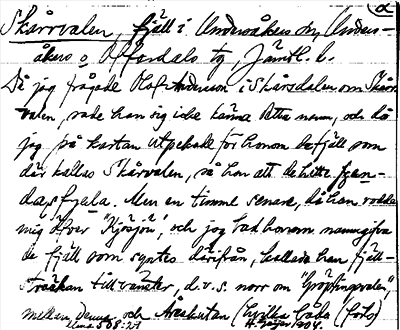 Skårvalen, fjäll i Undersåkers sn, Unders-
åkers o Offerdals tg, Jämtl. l.
Då jag frågade Olof Andersson i Skårsdalen om Skår-
valen, sade han sig icke känna detta namn, och då
jag på kartan utpekade för honom de fjäll som
där kallas Skårvalen, sa han att de hette
dagsfjela. Men en timme senare, då han rodde
mig över "Kjosjön", och jag bad honom namngiva
de fjäll som syntes därifrån, kallade han fjäll-
sträckan till vänster, d.v.s. norr om
mellan denna och Åreskutan